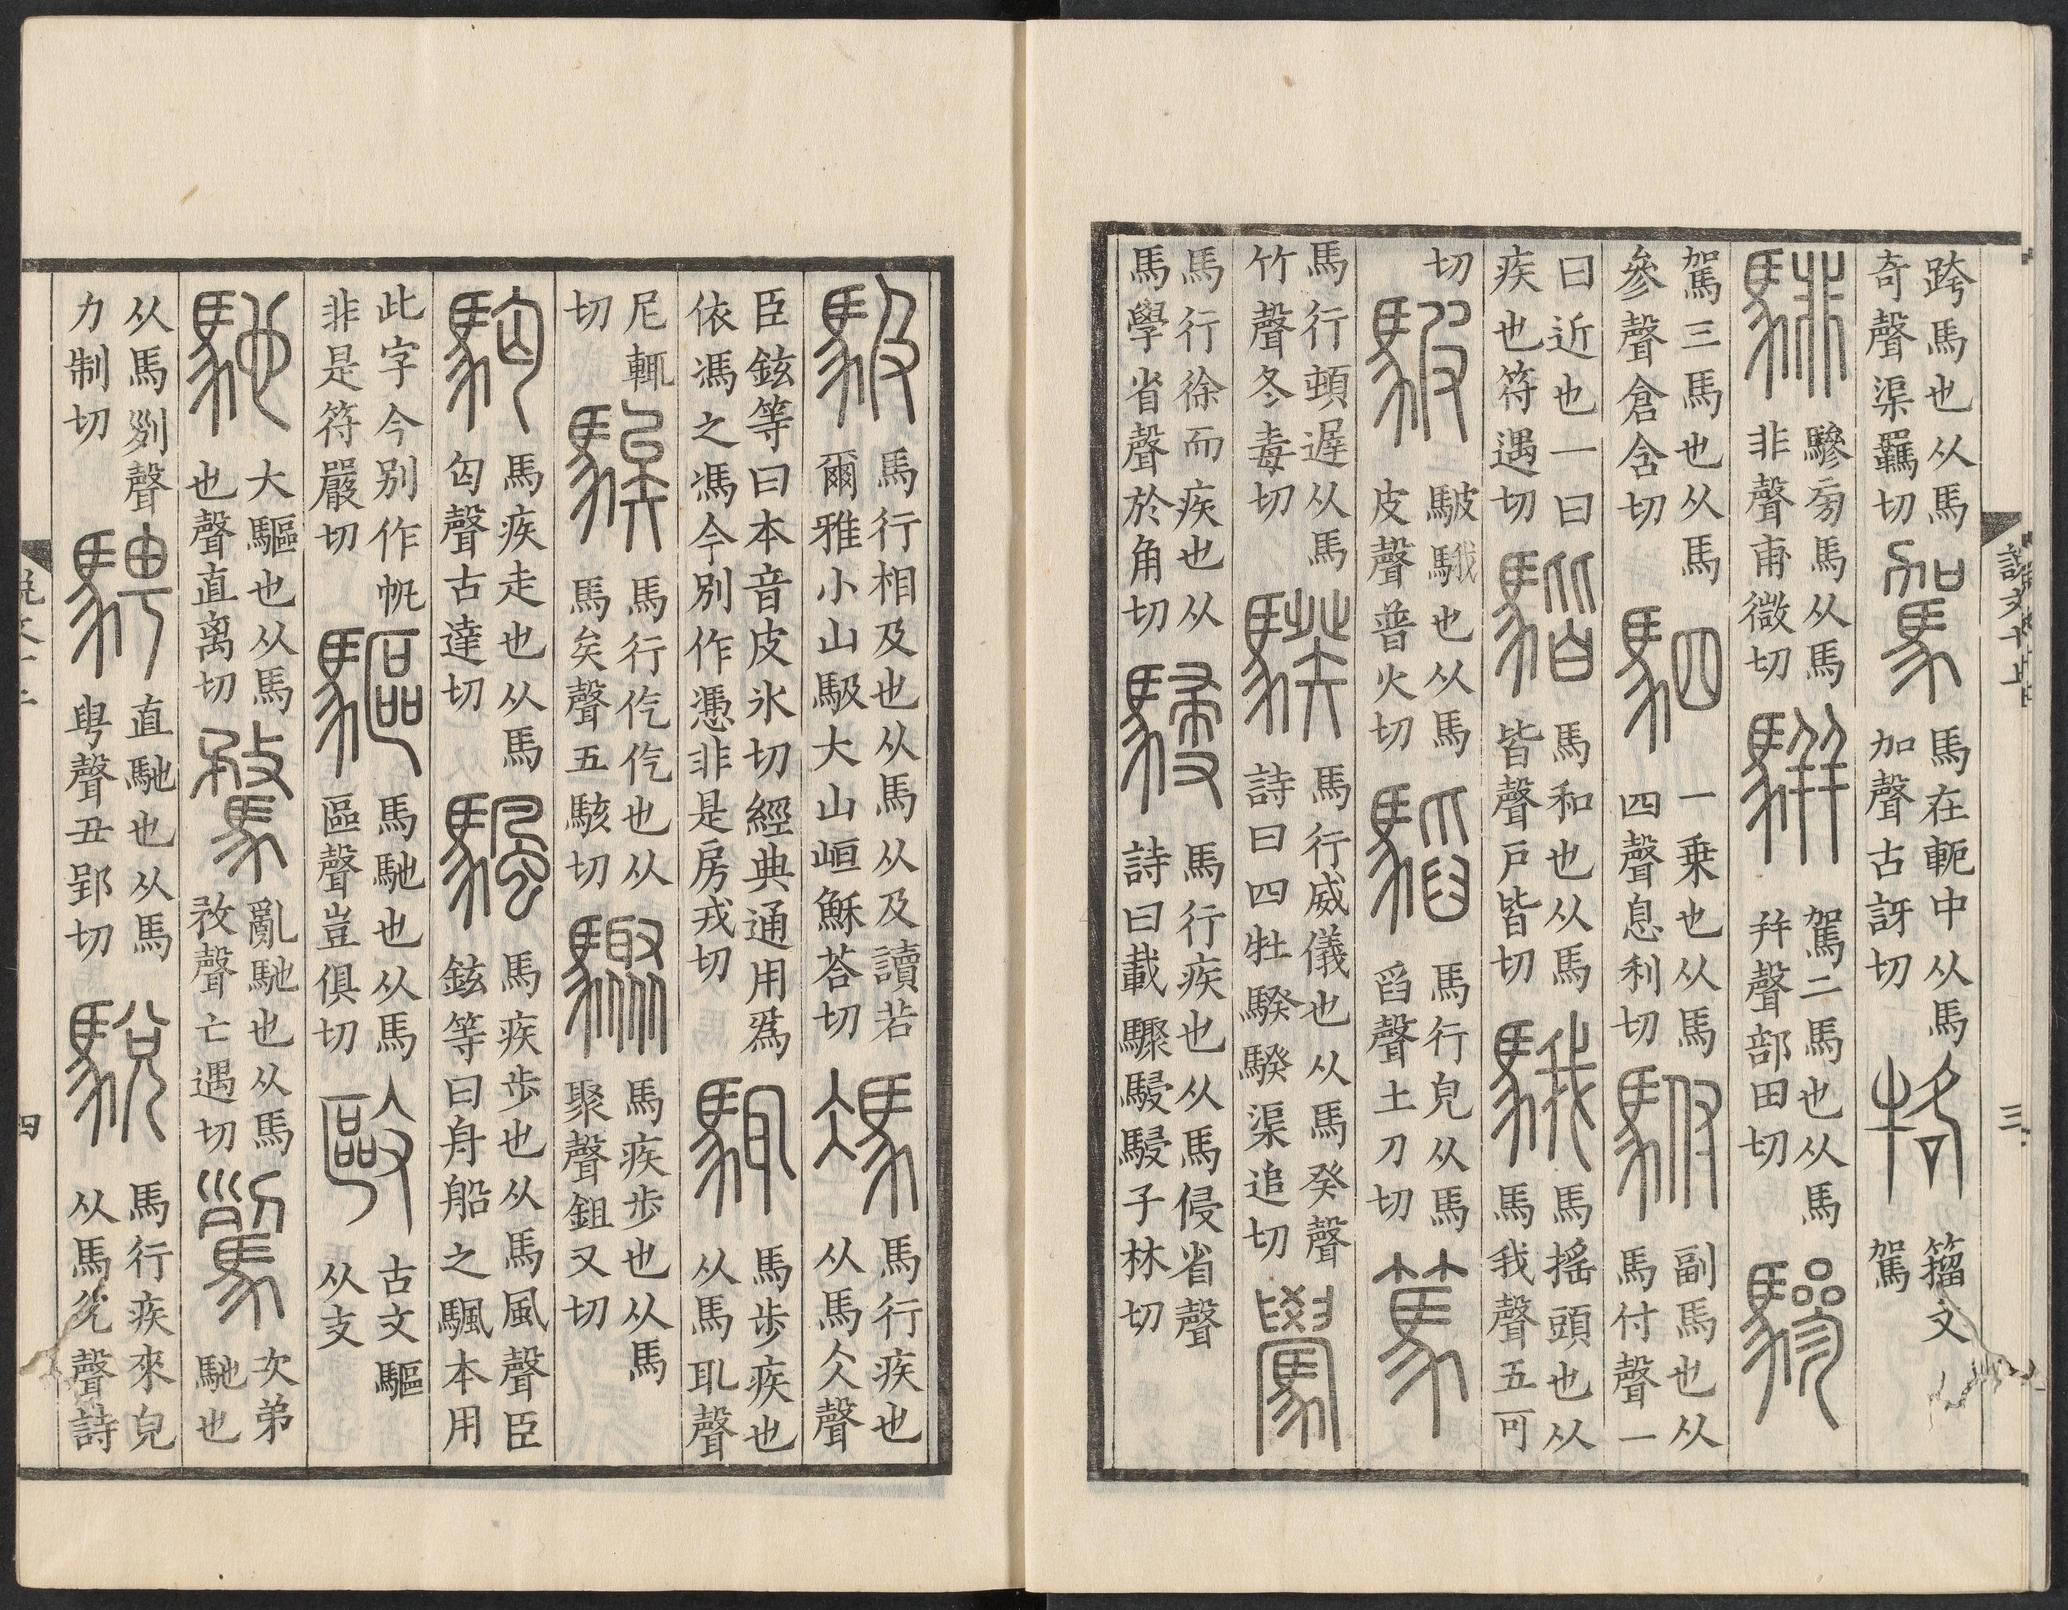 說文十上 三
跨馬也从馬奇聲渠羈切 駕 馬在軛中从馬加聲古訝切 籀文駕
騑 驂旁馬从馬非聲甫微切 駢 駕二馬也从馬幷聲部田切 驂
駕三馬也从馬參聲倉含切 駟 一乗也从馬四聲息利切 駙 副馬也从馬付聲一
曰近也一曰疾也符遇切 𩤠 馬和也从馬皆聲戶皆切 騀 馬搖頭也从馬我聲五可
切 駊 駊騀也从馬皮聲普火切 𩥅 馬行皃从馬舀聲土刀切 篤
馬行頓遟从馬竹聲冬毒切 騤 馬行威儀也从馬癸聲詩曰四牡騤騤渠追切 𩦡
馬行徐而疾也从馬學省聲於角切 駸 馬行疾也从馬侵省聲詩曰載驟駸駸子林切
馺 馬行相及也从馬从及讀若爾雅小山馺大山峘穌荅切 馮 馬行疾也从馬仌聲
臣鉉等曰本音皮氷切經典通用爲依馮之馮今別作憑非是房戎切 馬步疾也从馬耴聲
尼輒切 騃 馬行仡仡也从馬矣聲五駭切 驟 馬疾步也从馬聚聲鉏又切
馬疾走也从馬匃聲古達切 颿 馬疾步也从馬風聲臣鉉等曰舟船之颿本用
此字今别作帆非是符嚴切 驅 馬馳也从馬區聲豈俱切 敺 古文驅从攴
馳 大驅也从馬也聲直离切 騖 亂馳也从馬敄聲亡遇切 次弟馳也
从馬𠛱聲力制切 騁 直馳也从馬甹聲丑郢切 駾 馬行疾來皃从馬兊聲詩
說文十上 四